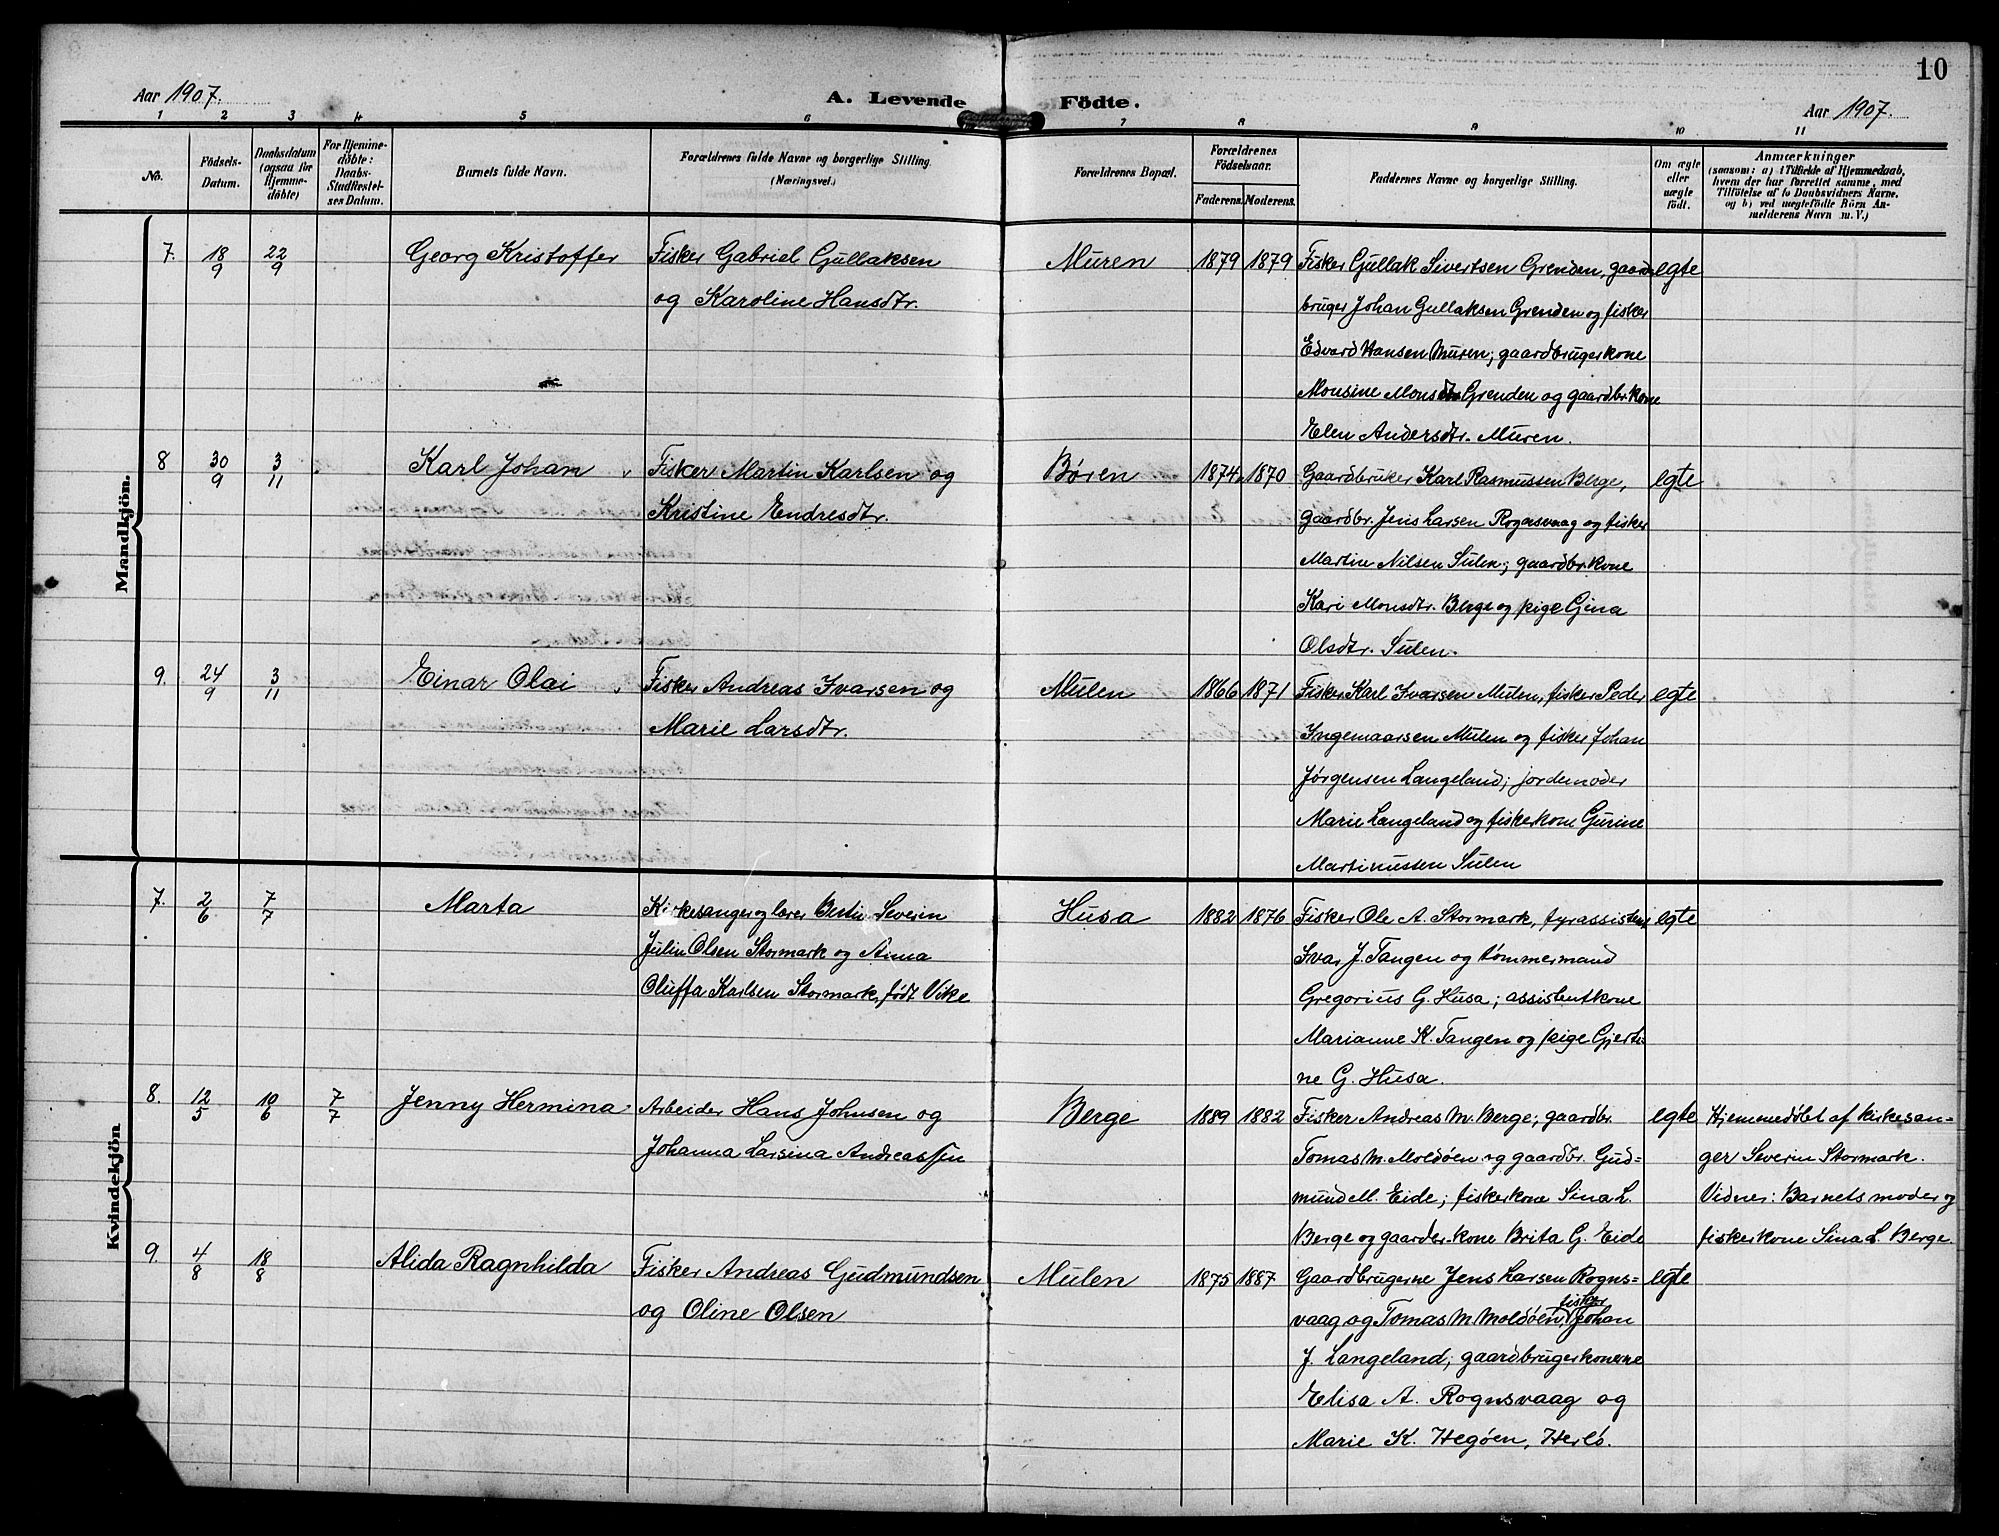 10
Aar 1907.
A. Levende Födte.
Aar 1907.
1 2 3 4 5 6 7 8 9 10 11
No.
Födsels-
Datum.
Daabsdatum
(ogsaa for
Hjemme-
döbte)
For Hjemme-
döbte:
Daabs-
Stadfæstel-
ses Datum.
Barnets fulde Navn.
Forældrenes fulde Navne og borgerlige Stilling.
(Næringsvei.)
Forældrenes Bopæl.
Forældrenes
Födselsaar.
Faderens. Moderens.
Faddernes Navne og borgerlige Stilling.
Om ægte
eller
uægte
födt.
Anmærkninger
(saasom: a) i Tilfælde af Hjemmedaab,
hvem der har forrettet samme, med
Tilföielse af to Daabsvidners Navne.
og b) ved uægtefödte Börn An-
melderens Navn m. V.)
Mandkjön.
7. 18/9 22/9 Georg Kristoffer Fisker Gabriel Gullaksen Muren 1879 1879 Fisker Gullak Sivertsen Grenden, gaard- egte
og Karoline Hansdtr. bruger Johan Gullaksen Grenden og fisker
Edvard Hansen Muren; gaardbrugerkone
Monsine Monsdtr Grenden og gaardbr.kone
Elen Andersdtr. Muren.
8 30/9 3/11 Karl Johan Fisker Martin Karlsen og Børen 1874 1870 Gaardbruker Karl Rasmussen Berge, egte
Kristine Endresdtr. gaardbr. Jens Larsen Rognsvaag og fisker
Martin Nilsen Sulen; gaardbr.kone
Kari Monsdtr. Berge og pige Gina
Olsdtr. Sulen.
9. 24/9 3/11 Einar Olai Fisker Andreas Ivarsen og Mulen 1866 1871 Fisker Karl Ivarsen Mulen, fisker Peder egte
Marie Larsdtr. Ingemaarsen Mulen og fisker Johan
Jørgensen Langeland; jordemoder
Marie Langeland og fiskerkone Gurine
Martinussen Sulen
Kvindekjön
7. 2/6 7/7 Marta Kirkesanger og lærer Bertin Severin Husa 1882 1876 Fisker Ole A. Stormark, fyrassistent egte
Julin Olsen Stormark og Anna Ivar J. Tangen og tømmermand
Oluffa Karlsen Stormark, født Vike Gregorius G. Husa; assistentkone
Marianne K. Tangen og pige Gjerti-
ne G. Husa.
8. 12/5 10/6 7/7 Jenny Hermina Arbeider Hans Johnsen og Berge 1889 1882 Fisker Andreas M. Berge; gaardbr. egte Hjemmedøbt af kirkesan-
Johanna Larsina Andreassen Tomas M. Moldøen og gaardbr. Gud- ger Severin Stormark.
mund M. Eide; fiskerkone Sina L. Vidner: Barnets moder og
Berge og gaardbr.kone Brita G. Eide fiskerkone Sina L. Berge.
9. 4/8 18/8 Alida Ragnhilda Fisker Andreas Gudmundsen Mulen 1875 1887 Gaardbrugerne Jens Larsen Rogns- egte
og Oline Olsen vaag og Tomas M. Moldøen, fisker Johan
J. Langeland; gaardbrugerkonerne
Elisa A. Rognsvaag og
Marie K. Hegøen, Herlø.